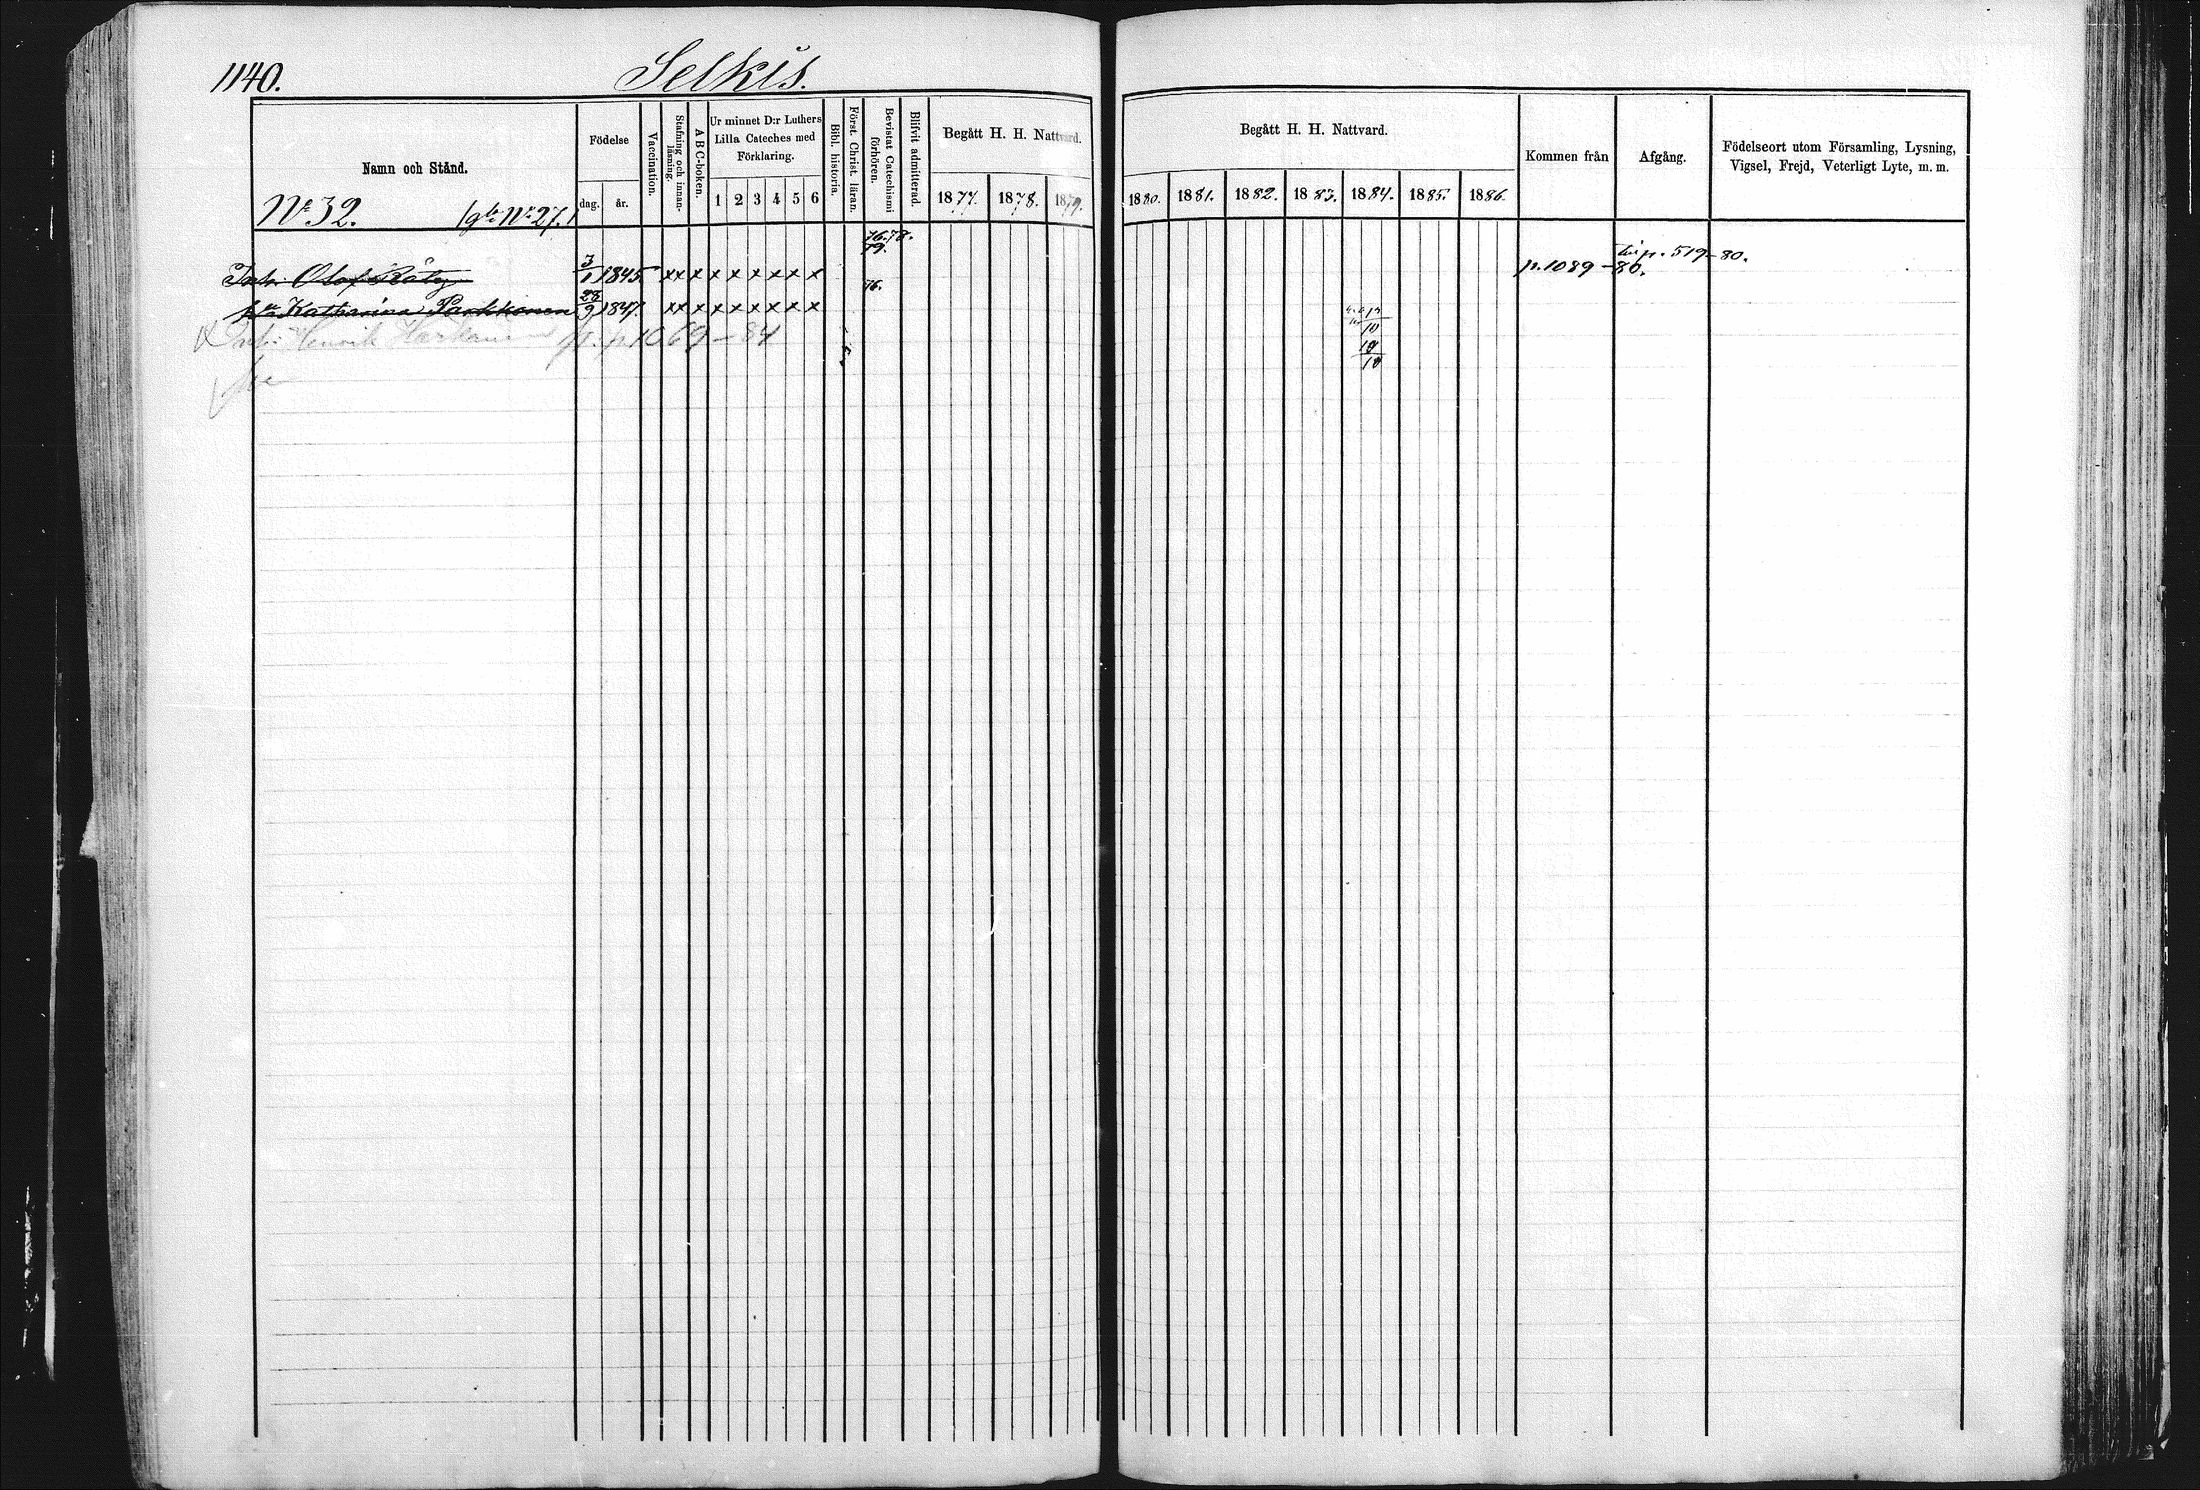 1140.
Selkis.
Namn och Stånd.
Födelse
dag.
år.
Vaccination.
Stafning och innan-
läsning.
A B C-boken.
Ur minnet D:r Luthers
Lilla Cateches med
Förklaring.
1 2 3 4 5 6
Bibl. historia.
Först. Christ. läran.
Bevistat Catechismi
förhören.
Blifvit admitterad.
Begått H. H. Nattvard.
1877. 1878. 1879.
Begått H. H. Nattvard.
1880. 1881. 1882. 1883. 1884. 1885. 1886.
Kommen från
Afgång.
Födelseort utom Församling, Lysning,
Vigsel, Frejd, Veterligt Lyte, m. m.
No 32. No 27.
76.78.
79.
Olof Räty 3/1 1845. x x x x x x x x x p. 1089–80. p. 519–80.
76.
Katharina Parkkonen 23/9 1847. x x x x x x x x x
Henrik p. 1069–84
10
10